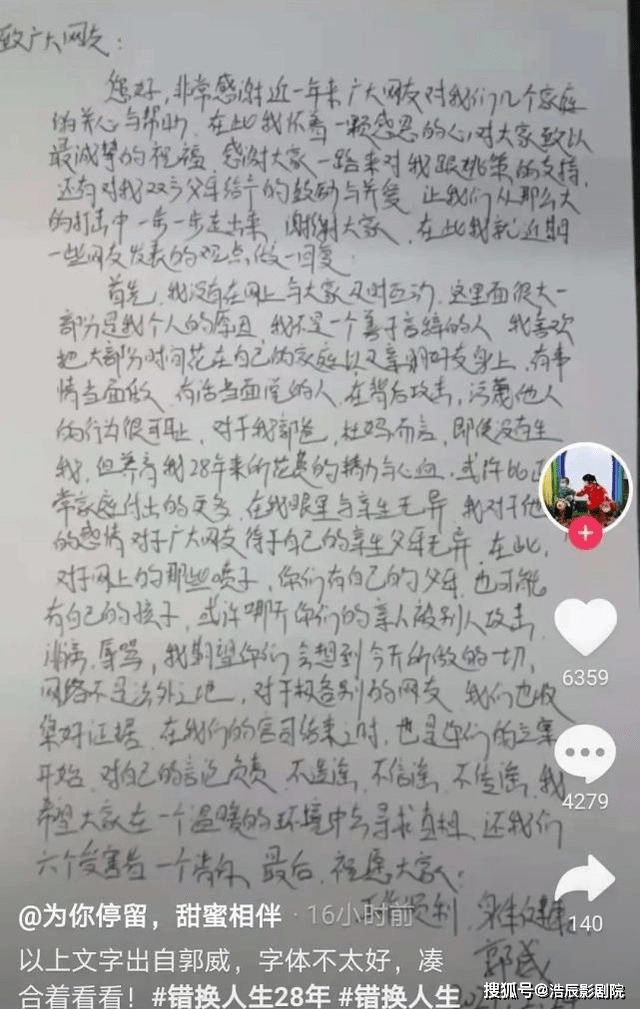 致广大网友:
您好,非常感谢近一年来广大网友对我们几个家庭
的关心与帮助,在此我怀着一颗感恩的心,对大家致以
最诚挚的祝福,感谢大家一路来对我跟姚策的支持,
还有对我双方父母给予的鼓励与关爱,让我们从那么大
的打击中一步一步走出来,谢谢大家,在此我就近期
一些网友发表的观点做一回复:
首先,我没有在网上与大家及时互动,这里面很大一
部分是我个人的原因,我不是一个善于言辞的人,我喜欢
把大部分时间花在自己的家庭以及亲朋好友身上,有事
情当面做,有话当面说的人,在背后攻击,污蔑他人
的行为很可耻,对于我郭爸,杜妈而言,即使没有生
我,但养育我28年来所花费的精力与心血,或许比正
常家庭付出的更多,在我眼里与亲生无异,我对于他
的感情对于广大网友待于自己的亲生父母无异,在此,
对于网上的那些喷子,你们有自己的父母,也可能
有自己的孩子,或许哪天你们的亲人被别人攻击,
诽谤,辱骂,我期望你们会想到今天所做的一切,
网络不是法外之地,对于极各别的网友,我们也收
集好证据,在我们的官司结束之时,也是你们的立案
开始,对自己的言论负责,不造谣,不信谣,不传谣,我
希望大家在一个温暖的环境中去寻求真相,还我们
六个受害者一个清白,最后,祝愿大家:
顺利,身体健康
郭威
6359
4279
140
@为你停留,甜蜜相伴 · 16小时前
以上文字出自郭威,字体不太好,凑
合着看看!#错换人生28年 #错换人生
搜狐号@浩辰影剧院